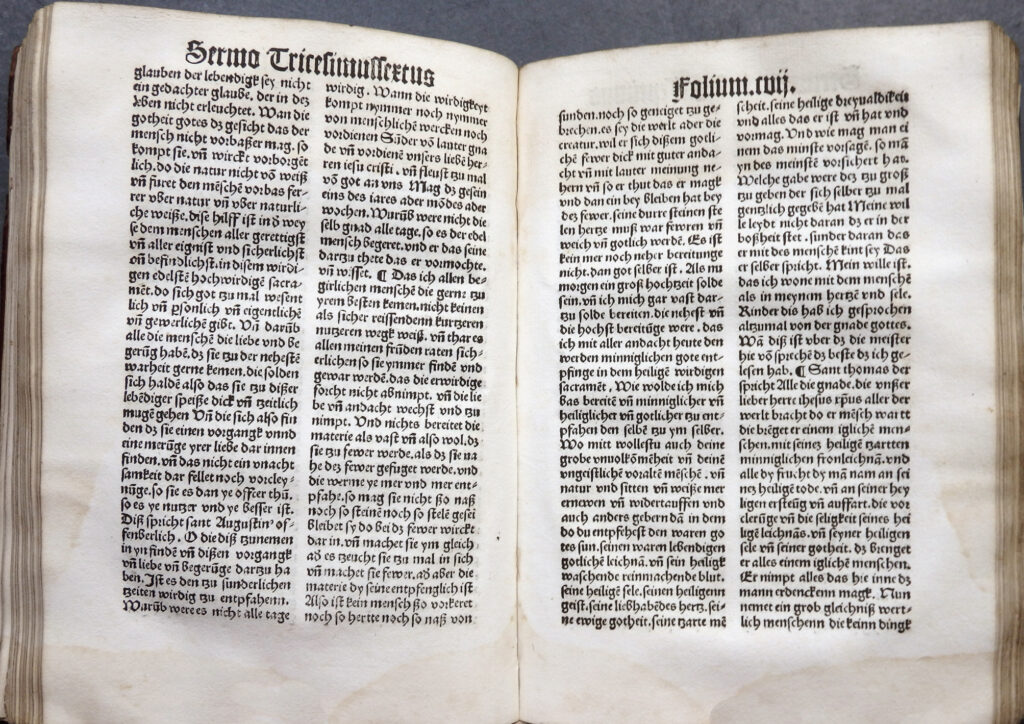 Sermo Tricesimussextus
glauben der lebendigk sey nicht
ein gedachter glaube. der in dez
leben nicht erleuchtet. Wan die
gotheit gotes dz gesicht das der
mensch nicht vorbaßer mag. so
kompt sie. vn̄ wirckt vorborgēt
lich. do die natur nicht vō weiß
vn̄ furet den mēsche vorbas fer-
rer vber natur vn̄ vber naturli-
che weiße. dise hilff ist in d̄ wey
se dem menschen aller gerettigst
vn̄ aller eignist vnd sicherlichst
vn̄ befindlichst. in disem wirdi-
gen edelstē hochwirdigē sacra-
mēt. do sich got tzu mal wesent
lich vn̄ psonlich vn̄ eigentlichē
vn̄ gewerlichē gibt. Vn̄ darūb
alle die menschē die liebe vnd be
gerūg habē. dz sie tzu der nehestē
warheit gerne kemen. die solden
sich haldē also das sie tzu dißer
lebēdiger speiße dick vn̄ tzeitlich
mugē gehen Vn̄ die sich also fin
den dz sie einen vorgangk vnnd
eine merūge yrer liebe dar innen
finden. vn̄ das nicht ein vnacht
samkeit dar fellet noch vorcley-
nūge. so sie es dan ye offeer thū.
so es ye nutzer vnd ye besser ist.
Diß spricht sant Augustin' of-
fenberlich. O die diß tzunemen
in yn findē vn̄ dißen vorgangk
vn̄ liebe vn̄ begerūge dartzu ha
ben. Ist es den tzu sunderlichen
tzeiten wirdig tzu entpfahenn.
Warūb were es nicht alle tage
wirdig. Wann die wirdigkeyt
kompt nymmer noch nymmer
von menschlichē wercken noch
vordienen Sūder vō lauter gna
de vn̄ vordienē vnsers liebē her-
ren iesu cristi. vn̄ fleust tzu mal
vō got an vns Mag dz gesein
eins des iares ader mōdes ader
wochen. Wurūb were nicht die
selb gnad alle tage. so es der edel
mensch begeret. vnd er das seine
dartzu thete das er vormochte.
vn̄ wisset. ¶ Das ich allen be-
girlichen menschē die gerne tzu
yrem besten kemen. nicht keinen
als sicher reissendenn kurtzeren
nutzeren wegk weiß. vn̄ thar es
allen meinen frūden raten sich-
erlichen so sie ymmer findē vnd
gewar werdē. das die erwirdige
forcht nicht abnimpt. vn̄ die lie
be vn̄ andacht wechst vnd tzu
nimpt. Vnd nichts bereitet die
materie als vast vn̄ also wol. dz
sie tzu fewer werde. als dz sie na
he dez fewer gefuget werde. vnd
die werme ye mer vnd mer ent-
pfahe. so mag sie nicht so naß
noch so steinē noch so stelē gesei
bleibet sy do bei dz fewer wirckt
dar in. vn̄ machet sie ym gleich
ad̄ es tzeucht sie tzu mal in sich
vn̄ machet sie fewer. ad̄ aber die
materie dy seinē entpfenglich ist
Also ist kein mensch so vorkeret
noch so hertte noch so naß von
Folium.cvij.
sunden. noch so geneiget tzu ge-
brechen. es sey die werlt ader die
creatur. wil er sich dißem gotli-
chē fewer dick mit guter anda-
cht vn̄ mit lauter meinung ne-
hern vn̄ so er thut das er magk
vnd dan ein bey bleiben hat bey
dez fewer. seine durre steinen ste
len hertze muß war fewren vn̄
weich vn̄ gotlich werdē. Es ist
kein mer noch neher bereitunge
nicht. dan got selber ist. Als mu
morgen ein groß hochtzeit solde
sein. vn̄ ich mich gar vast dar-
tzu solde bereiten. die nehest vn̄
die hochst bereitūge were. das
ich mit aller andacht heute den
werden minniglichen gote ent-
pfinge in dem heiligē wirdigen
sacramēt. Wie wolde ich mich
bas bereitē vn̄ minniglicher vn̄
heiliglicher vn̄ gotlicher tzu ent-
pfahen den selbē tzu ym selber.
Wo mitt wollestu auch deine
grobe vnuolkōmēheit vn̄ deinē
vngeistlichē voraltē mēschē. vn̄
natur vnd sitten vn̄ weiße mer
ernewen vn̄ widertauffen vnd
auch anders gebern dā in dem
do du entpfehest den waren go
tes sun. seinen waren lebendigen
gotlichē leichnā. vn̄ sein heiligk
waschende reinmachende blut.
seine heiligē sele. seinen heiligenn
geist. seine liebhabēdes hertz. sei-
ne ewige gotheit. seine tzarte mē
scheit. seine heilige dreyualdikeit
vnd alles das er ist vn̄ hat vnd
vormag. Vnd wie mag man ei
nem das minste vorsagē. so mā
yn des meinstē vorsichert has.
Welche gabe were dez tzu groß
tzu geben der sich selber tzu mal
gentzlich gegebē hat Meine wil
le leydt nicht daran dz er in der
boßheit stet. sunder daran das
er mit des menschē kint sey Das
er selber spricht. Mein wille ist.
das ich wone mit dem menschē
als in meynem hertzē vnd sele.
Kinder dis hab ich gesprochen
altzumal von der gnade gottes.
Wā diß ist vber dz die meister
hie vō sprechē dz beste dz ich ge-
lesen hab. ¶ Sant thomas der
spricht Alle die gnade. die vnßer
lieber herre ihesus xp̄us aller der
werlt bracht do er mēsch wartt
die brēget er einem iglichē men-
schen. mit seinez heiligē tzartten
minniglichen fronleichnā. vnd
alle dy frucht dy mā nam an sei
nez heiligē tode. vn̄ an seiner hey
ligen ersteūg vn̄ auffart. die vor
clerūge vn̄ die seligkeit seines hei
ligē leichnās. vn̄ seyner heiligen
sele vn̄ seiner gotheit. dz brenget
er alles einem iglichē menschen.
Er nimpt alles das hie inne dz
mann erdenckenn magk. Nun
nemet ein grob gleichniß wert-
lich menschenn die keinn dingk